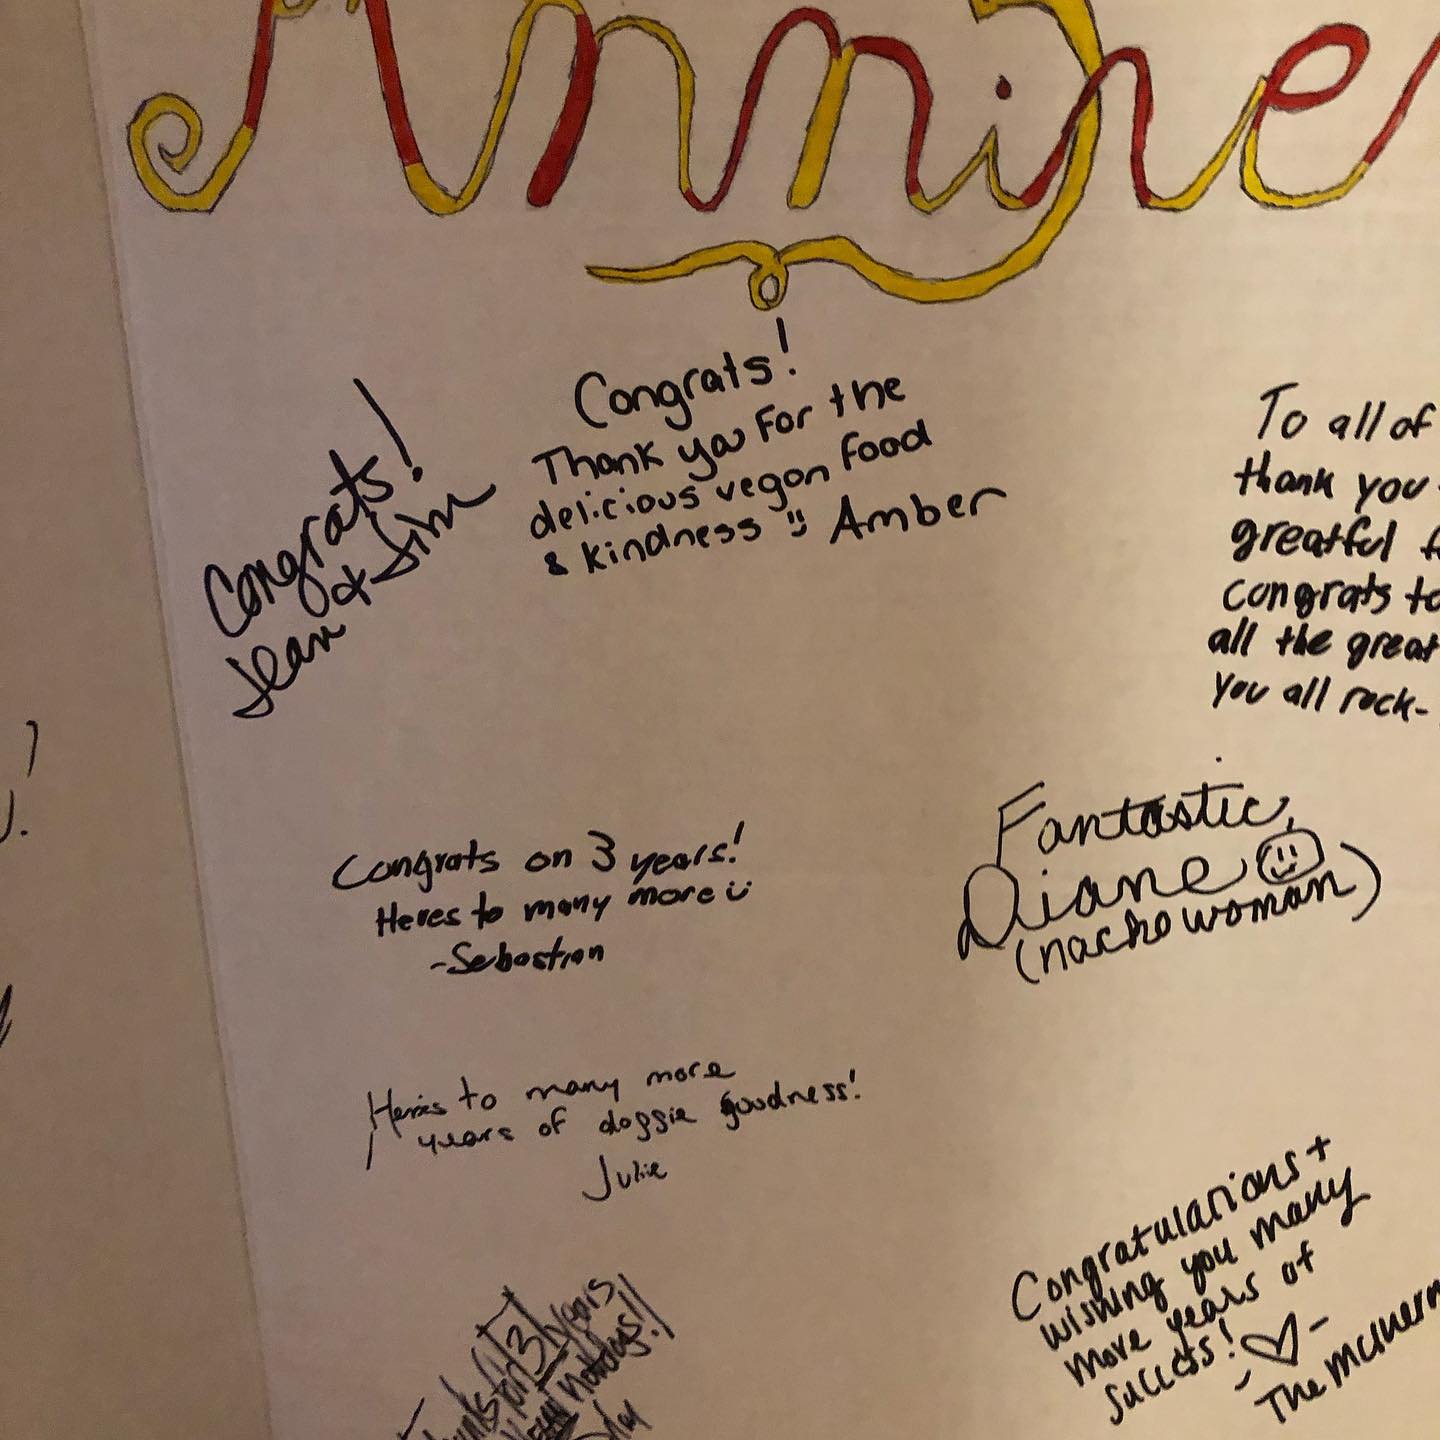 Congrats!
Jean & Jim
Congrats!
Thank you For the
delicious vegan food
& kindness Amber
To all of
thank you
greatful
congrats to
all the great
you all rock-
Congrats on 3 years!
Heres to many more
-Sebastian
Fantastic,
Diane
(nacho woman)
Heres to many more
years of doggie goodness!
Julie
Congratulations +
wishing you many
more years of
success!
- The
Thanks for 3 Years
Vegan Hotdogs!!